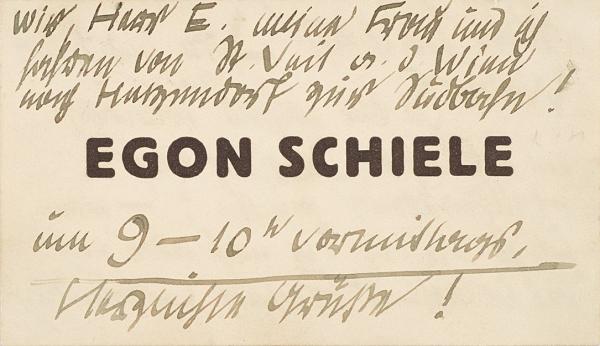 wir, Herr E. meine Frau und ich
fahren von St. Veit a. d. Wien
nach Hetzendorf zur Südbahn!
EGON SCHIELE
um 9 – 10 h vormittags,
Herzlichste Grüße!